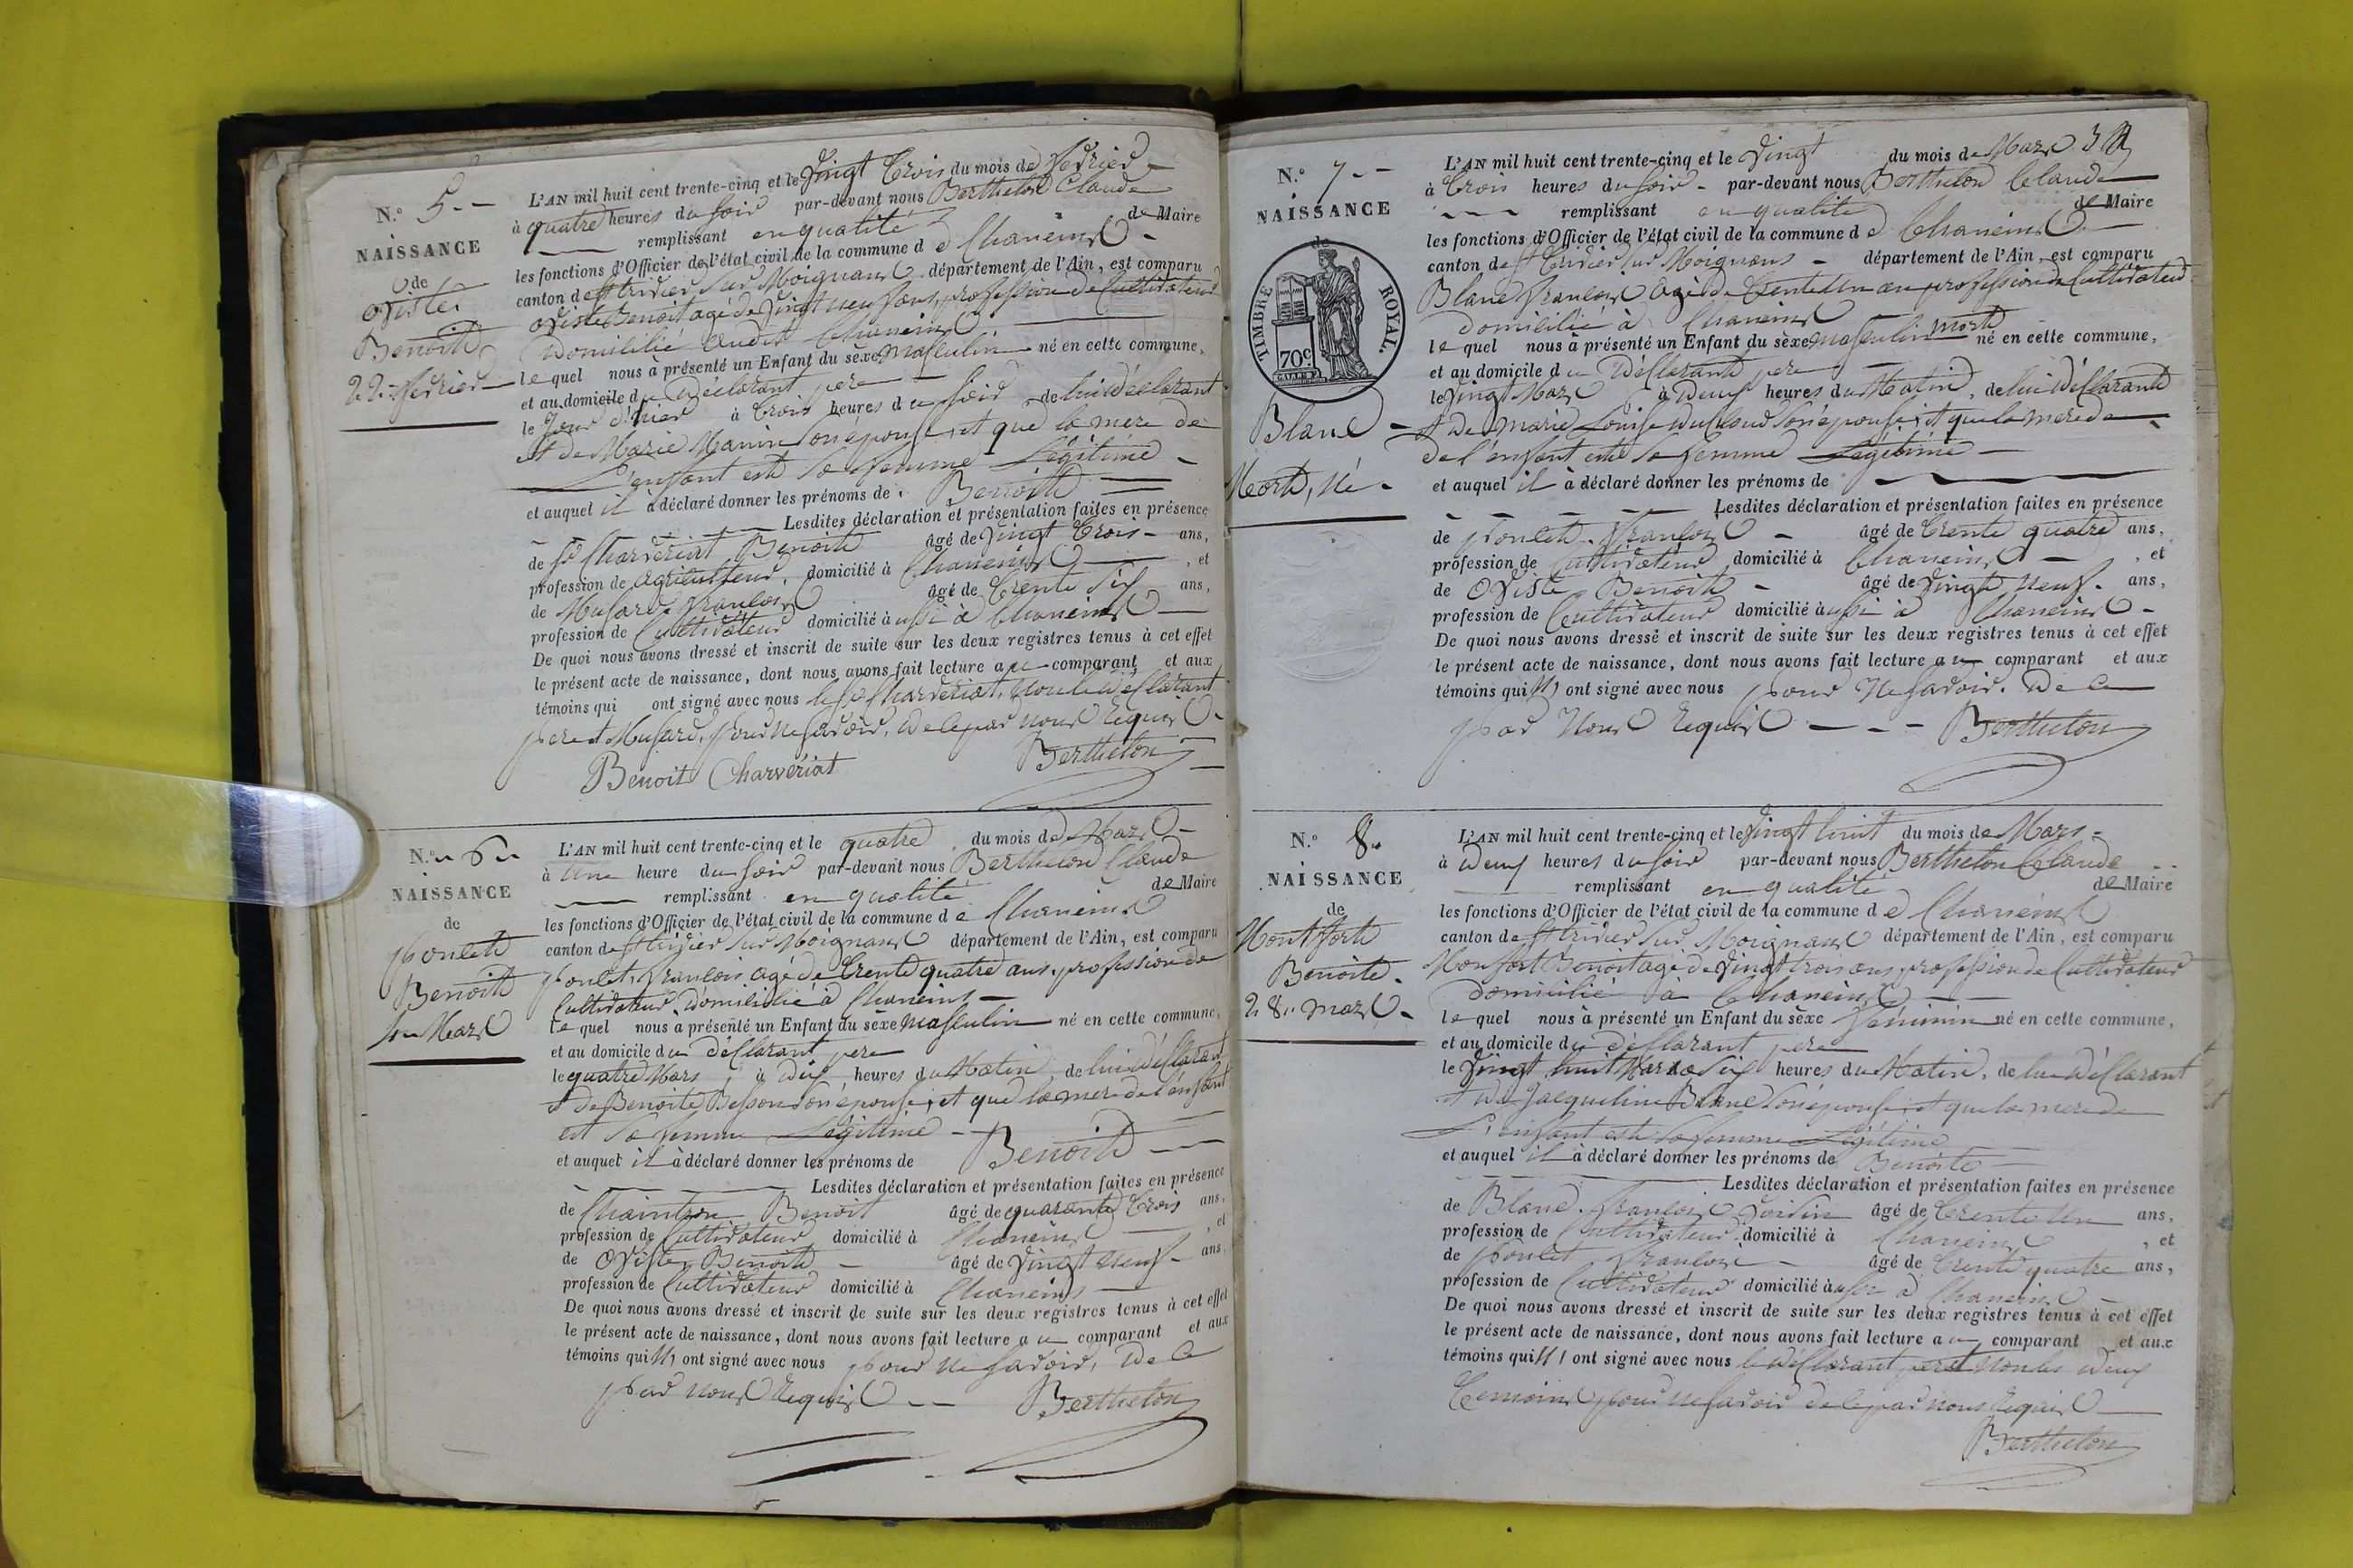 N.º 5
NAISSANCE
de
Oviste
Benoit
22 fevrier
L'AN mil huit cent trente-cinq et le vingt trois du mois de fevrier
à quatre heures du soir par-devant nous Berthelon Claude
remplissant en qualité de Maire
les fonctions d'Officier de l'état civil de la commune de Chaneins
canton de St trivier sur Moignans département de l'Ain, est comparu
Oviste Benoit agé de vingt neuf ans, profession de Cultivateur
domicilié audit Chaneins
lequel nous a présenté un Enfant du sèxe masculin né en cette commune,
et au domicile du déclarant pere
le jour d'hier à trois heures du soir de lui déclarant
et de Marie Manin son épouse, et que la mere de
L'enfant est sa femme Légitime
et auquel il à déclaré donner les prénoms de Benoit
Lesdites déclaration et présentation faites en présence
de Sr Charvériat Benoit âgé de vingt trois ans,
profession de agriculteur, domicilié à Chaneins, et
de Musard françois âgé de trente six ans,
profession de Cultivateur domicilié aussi à Chaneins
De quoi nous avons dressé et inscrit de suite sur les deux registres tenus à cet effet
le présent acte de naissance, dont nous avons fait lecture au comparant et aux
témoins qui ont signé avec nous le Sr Charvériat, non le déclarant
pere et Musard, pour ne savoir, de ce par nous requis
Benoit Charvériat Berthelon
N.º 6
NAISSANCE
de
Poulet
Benoit
4 Mars
L'AN mil huit cent trente-cinq et le quatre du mois de Mars
à une heure du soir par-devant nous Berthelon Claude
remplissant en qualité de Maire
les fonctions d'Officier de l'état civil de la commune de Chaneins
canton de St trivier sur Moignans département de l'Ain, est comparu
Poulet, françois agé de trente quatre ans, profession de
Cultivateur domicilié à Chaneins
lequel nous a présenté un Enfant du sèxe masculin né en cette commune,
et au domicile du déclarant pere
le quatre Mars, à dix heures du Matin, de lui déclarant
et de Benoite Besson son épouse, et que la mere de l'enfant
est sa femme Légitime
et auquel il à déclaré donner les prénoms de Benoit
Lesdites déclaration et présentation faites en présence
de Chaintron Benoit âgé de quarante trois ans,
profession de Cultivateur domicilié à Chaneins, et
de Oviste Benoit âgé de vingt neuf ans,
profession de Cultivateur domicilié à Chaneins
De quoi nous avons dressé et inscrit de suite sur les deux registres tenus à cet effet
le présent acte de naissance, dont nous avons fait lecture au comparant et aux
témoins qui n'ont signé avec nous pour ne savoir, de ce
par nous requis Berthelon
N.º 7
NAISSANCE
de
TIMBRE ROYAL.
70c
Blanc
Mort, Né
L'AN mil huit cent trente-cinq et le vingt du mois de Mars 3
à trois heures du soir par-devant nous Berthelon Claude
remplissant en qualité de Maire
les fonctions d'Officier de l'état civil de la commune de Chaneins
canton de St trivier sur Moignans département de l'Ain, est comparu
Blanc françois agé de trente un an profession de Cultivateur
domicilié à Chaneins
lequel nous à présenté un Enfant du sèxe masculin mort né en cette commune,
et au domicile du déclarant pere
le vingt Mars à deux heures du Matin, de lui déclarant
et de marie Louise son épouse, et que la mere de
de l'enfant est sa femme Légitime
et auquel il à déclaré donner les prénoms de
Lesdites déclaration et présentation faites en présence
de Poulet françois âgé de trente quatre ans,
profession de Cultivateur domicilié à Chaneins, et
de Oviste Benoit âgé de vingt neuf ans,
profession de Cultivateur domicilié aussi à Chaneins
De quoi nous avons dressé et inscrit de suite sur les deux registres tenus à cet effet
le présent acte de naissance, dont nous avons fait lecture au comparant et aux
témoins qui n'ont signé avec nous pour ne savoir. de ce
par nous requis Berthelon
N.º 8
NAISSANCE
de
Montfort
Benoite
28 mars
L'AN mil huit cent trente-cinq et le vingt huit du mois de Mars
à deux heures du soir par-devant nous Berthelon Claude
remplissant en qualité de Maire
les fonctions d'Officier de l'état civil de la commune de Chaneins
canton de St trivier sur Moignans département de l'Ain, est comparu
Monfort Benoit agé de vingt trois ans, profession de Cultivateur
domicilié à Chaneins
lequel nous à présenté un Enfant du sèxe féminin né en cette commune,
et au domicile du déclarant pere
le vingt huit Mars à six heures du Matin, de lui déclarant
et de Jacqueline Blanc son épouse et que la mere de
L'enfant est sa femme Légitime
et auquel il à déclaré donner les prénoms de Benoite
Lesdites déclaration et présentation faites en présence
de Blanc françois voisin âgé de trente un ans,
profession de Cultivateur domicilié à Chaneins, et
de Poulet françois âgé de trente quatre ans,
profession de Cultivateur domicilié aussi à Chaneins
De quoi nous avons dressé et inscrit de suite sur les deux registres tenus à cet effet
le présent acte de naissance, dont nous avons fait lecture au comparant et aux
témoins qui n'ont signé avec nous le déclarant pere et non les deux
temoins pour ne savoir de ce par nous requis
Berthelon